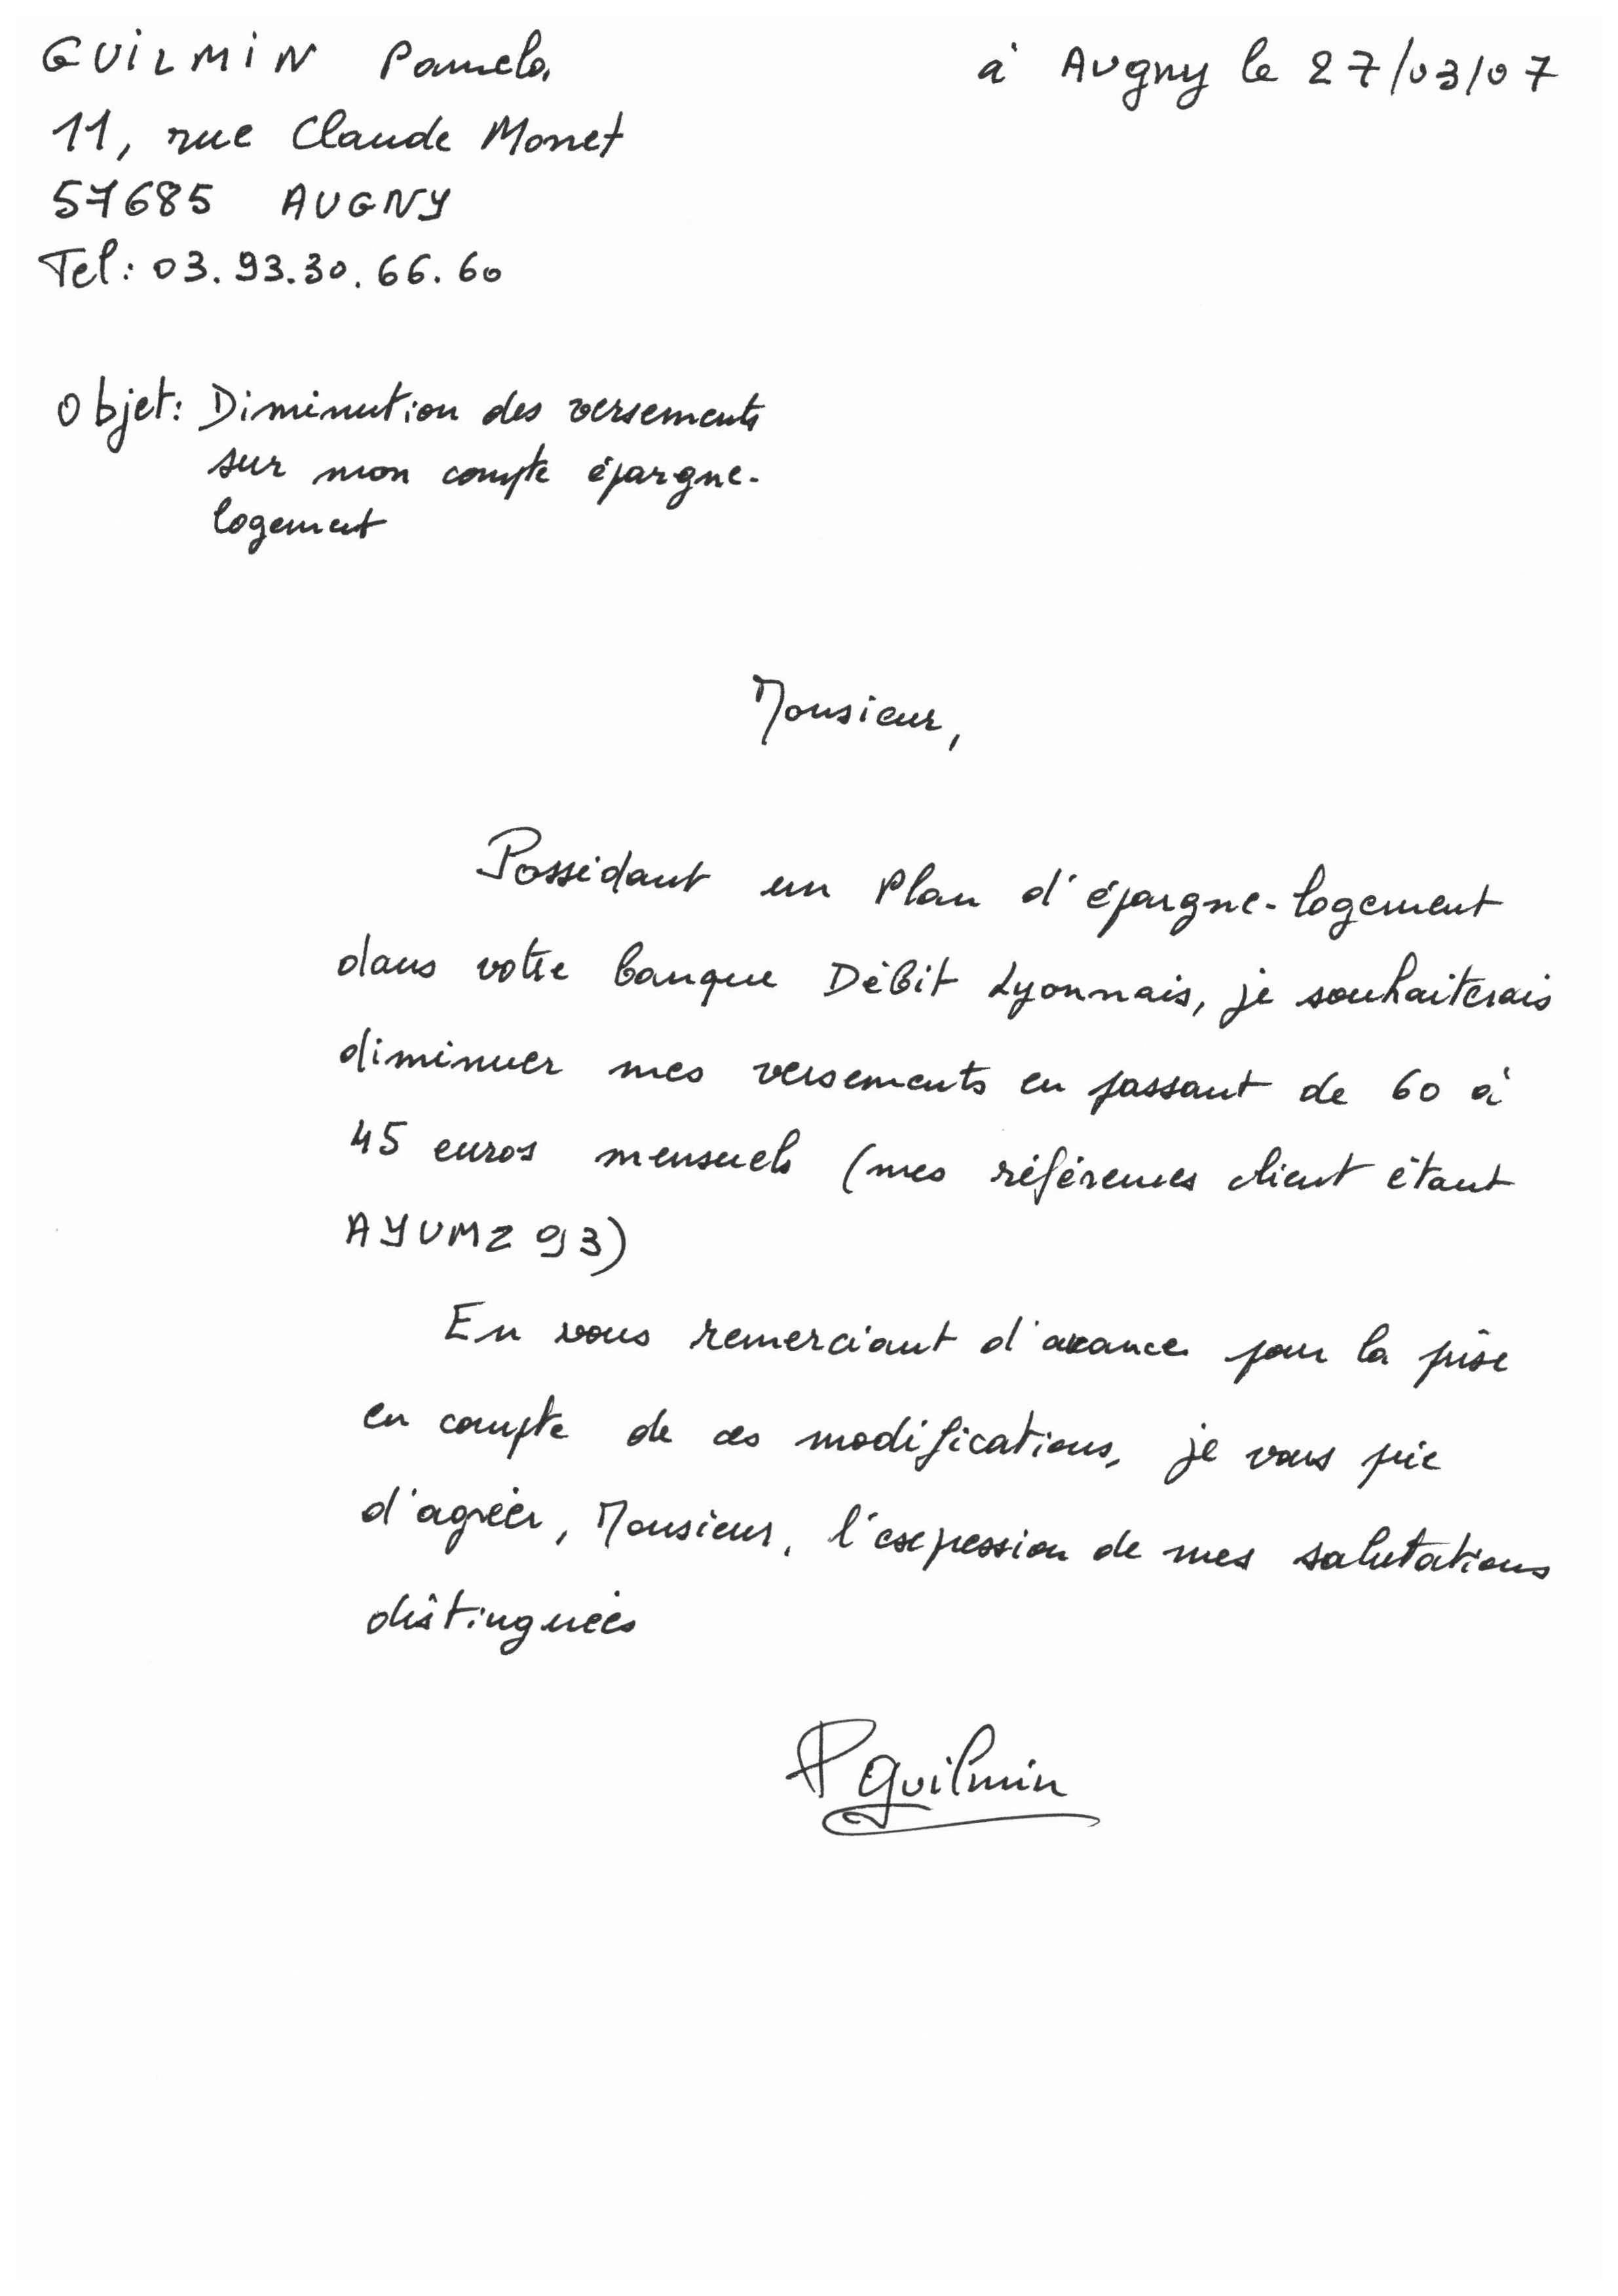 GUILMIN Pamela
à Augny le 27/03/07
11, rue Claude Monet
57685 AUGNY
Tel: 03.93.30.66.60
Objet: Diminution des versements
sur mon compte épargne-
logement
Monsieur,
Possédant un Plan d'épargne-logement
dans votre banque Débit Lyonnais, je souhaiterais
diminuer mes versements en passant de 60 à
45 euros mensuels (mes références client étant
AYUMZ93)
En vous remerciant d'avance pour la prise
en compte de ces modifications, je vous prie
d'agréer, Monsieur, l'expression de mes salutations
distinguées
P Guilmin